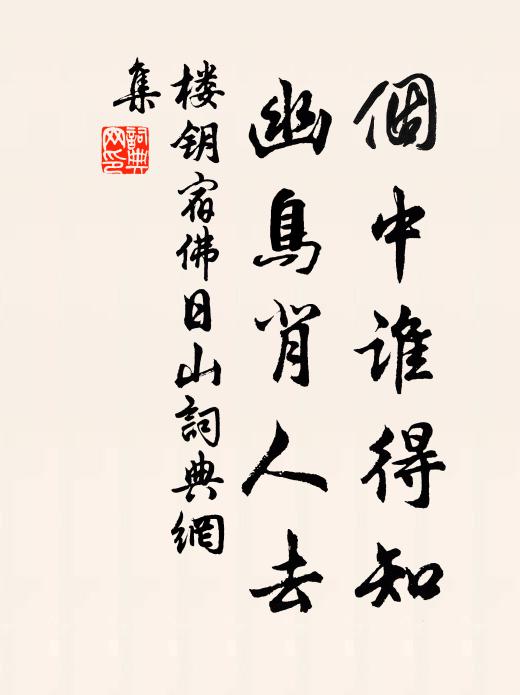 個中誰得知
幽鳥背人去
楼钥宿佛日山詞典網
集
詞典
网印